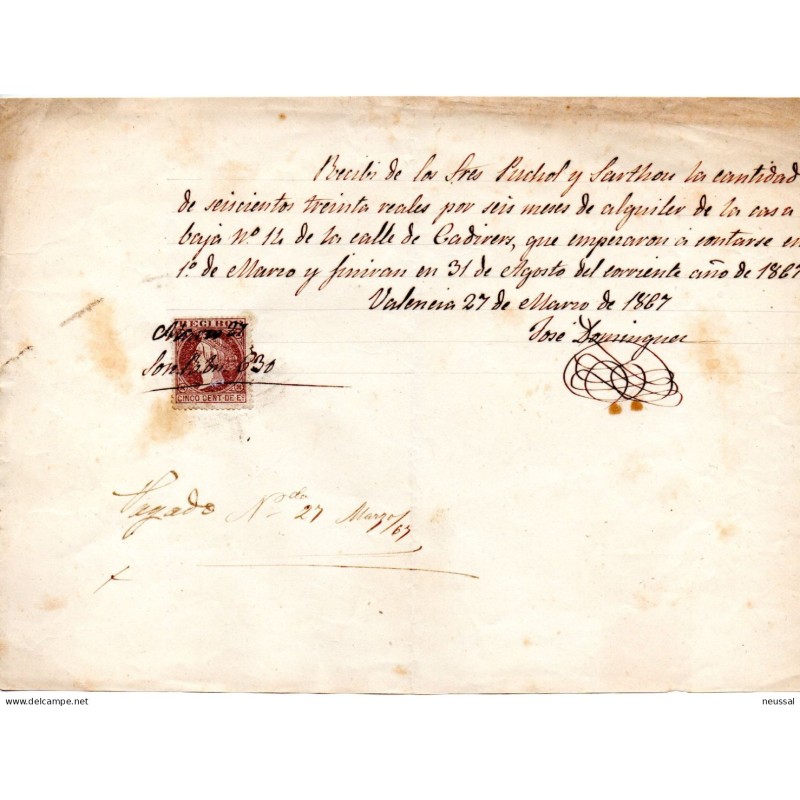 Recibi de los Sres Puchol y Sarthou la cantidad
de seiscientos treinta reales por seis meses de alquiler de la casa
baja Nº 14 de la calle de Cadirers, que empezaron á contarse en
1º de Marzo y finiran en 31 de Agosto del corriente año de 1867
Valencia 27 de Marzo de 1867
José Dominguez
RECIBOS
27
Son 630
CINCO CENT. DE Eº
Pagado 27 Marzo/67
www.delcampe.net
neussal